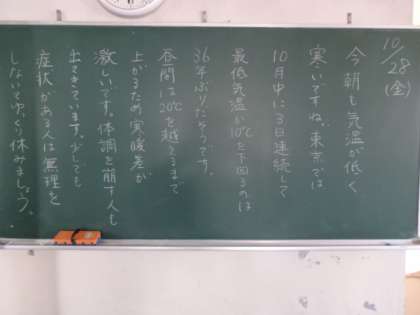 10/28
(金)
今朝も気温が低く
寒いですね。東京では
10月中に3日連続して
最低気温が10℃を下回るのは
36年ぶりだそうです。
昼間は20℃を越えるまで
上がるため寒暖差が
激しいです。体調を崩す人も
出てきています。少しでも
症状がある人は無理を
しないでゆっくり休みましょう。